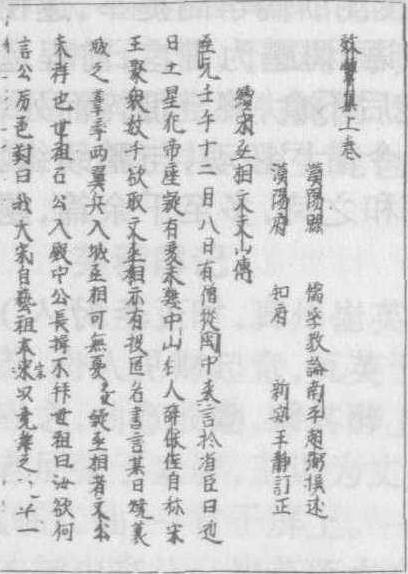 效顰集上卷
漢陽縣 儒學教諭南平趙弼撰述
漢陽府 知府 新安王靜訂正
續宋丞相文文山傳
至元壬午十二月八日有僧從閩中來言於省臣曰近
日土星犯帝座疑有變未幾中山狂人薛保住自稱宋
王聚衆數千欲取文丞相亦有投匿名書言某日燒蓑
城之葦率兩翼兵入城丞相可無憂 疑丞相者天
祥也世祖召公入殿中公長揖不拜世祖曰汝欲何
言公厉色對曰我大宋自藝祖 以堯舜之